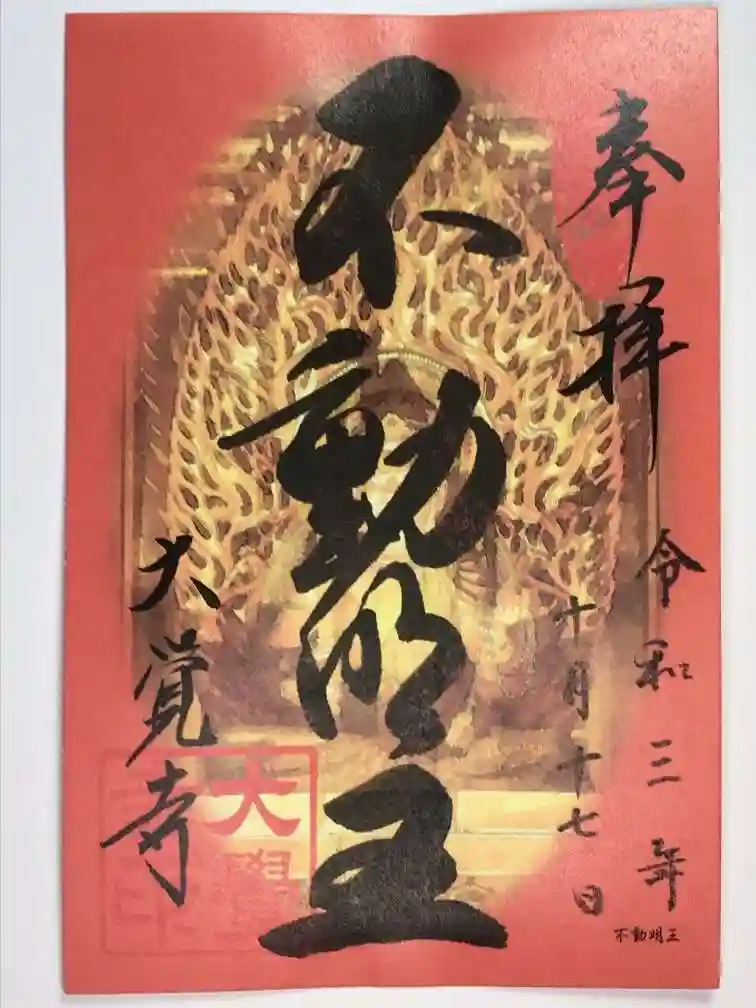 奉拝
令和三年
十月十七日
不動明王
大覚寺
大覺
不動明王